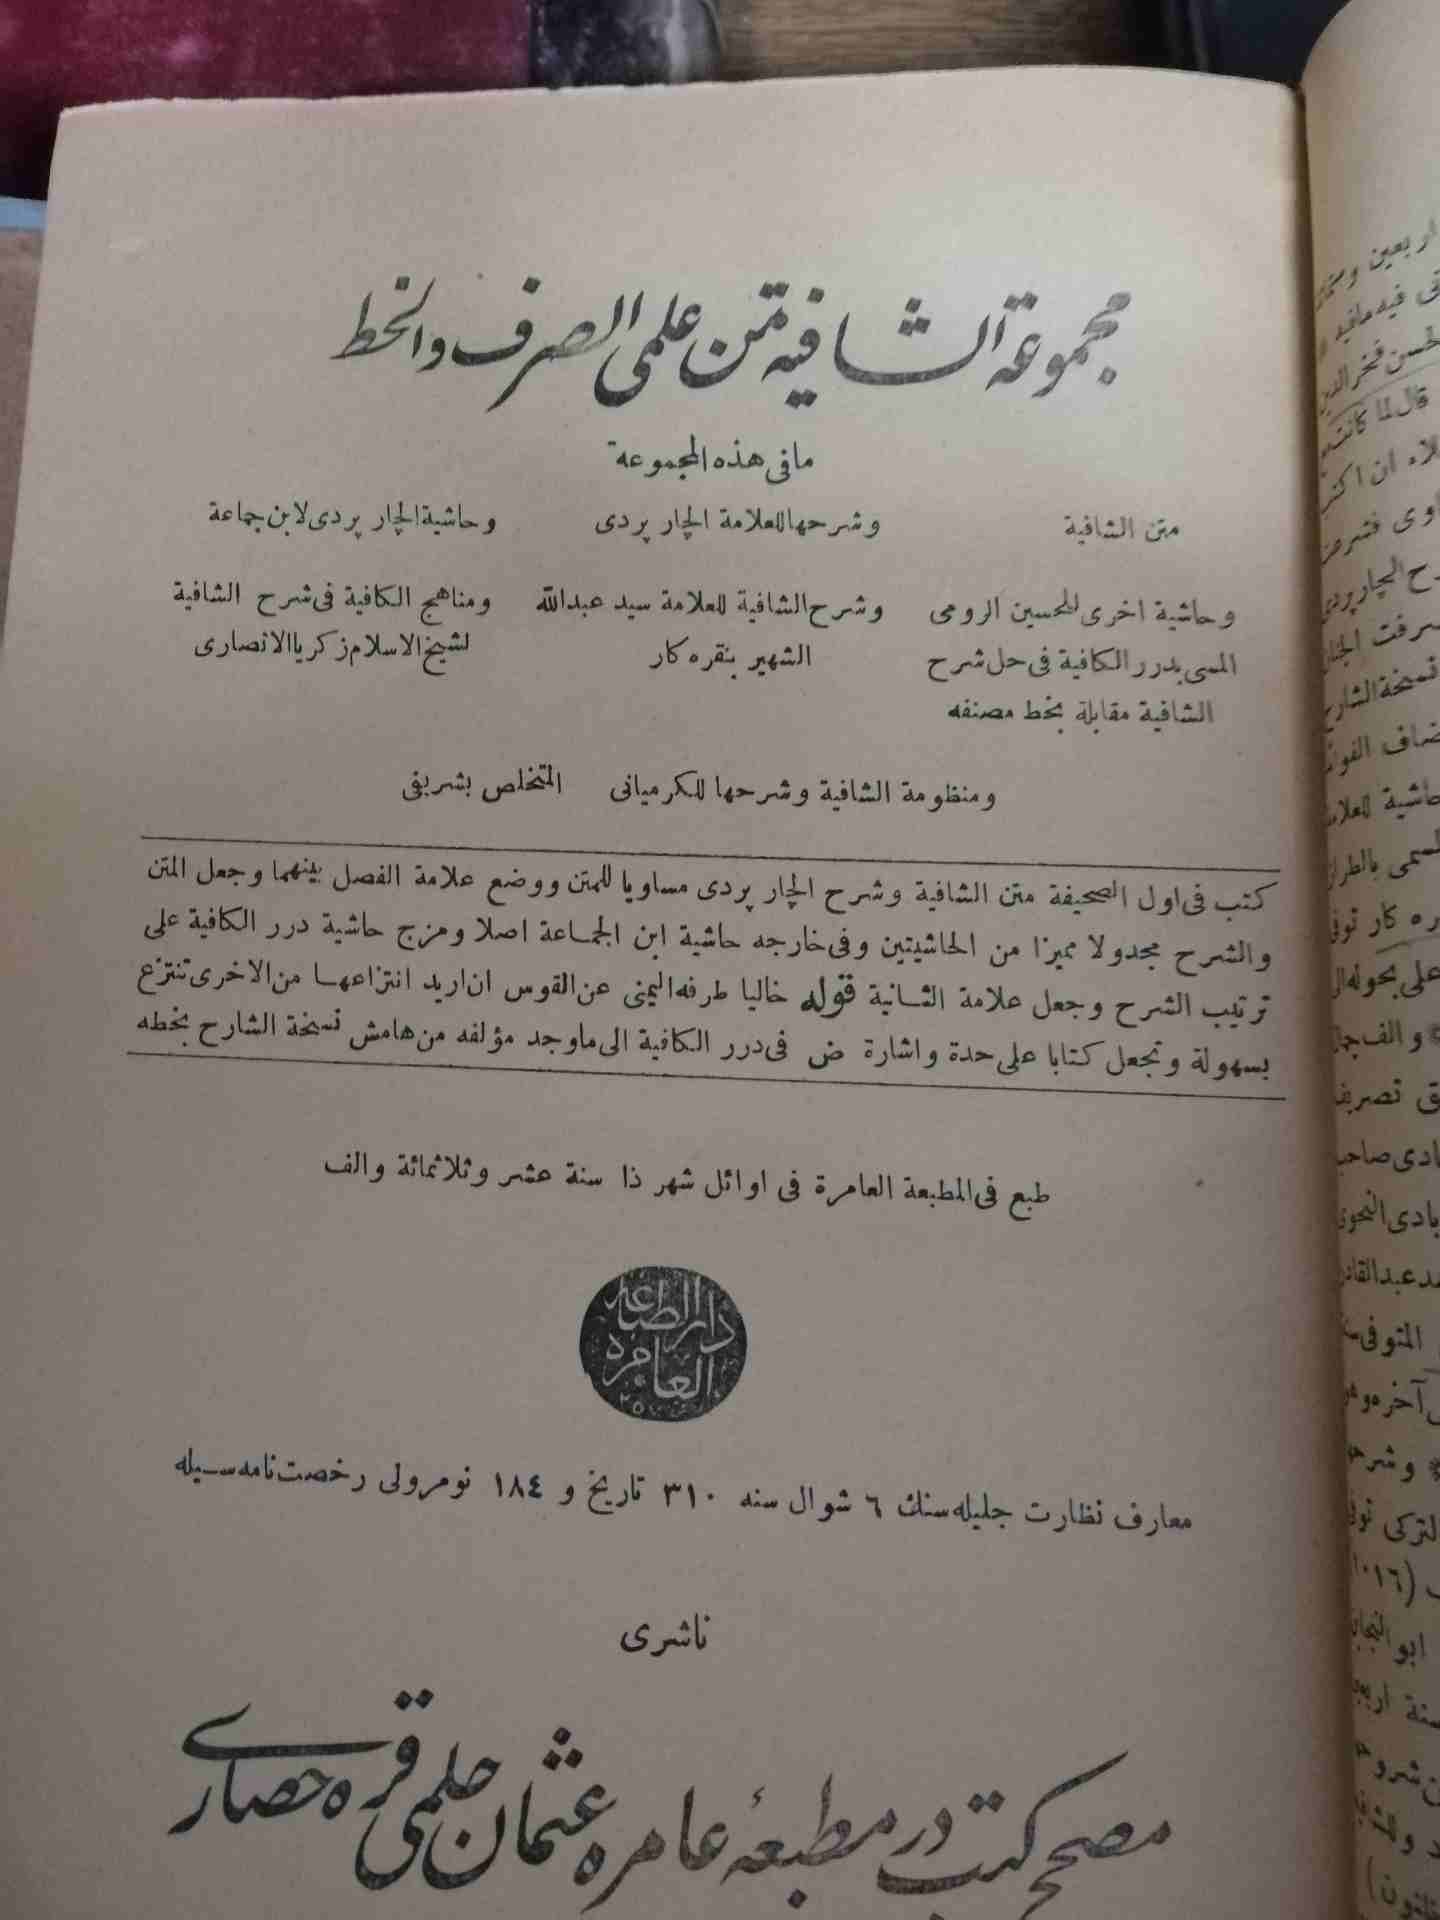 مجموعة الشافيه متن علمى الصرف والخط
مافى هذه المجموعة
متن الشافية
وشرحها للعلامة الچار پردى
وحاشية الچار پردى لابن جماعة
وحاشية اخرى للحسين الرومى
المسمى بدرر الكافية فى حل شرح
الشافية مقابلة بخط مصنفه
وشرح الشافية للعلامة سيد عبدالله
الشهير بنقره كار
ومناهج الكافية فى شرح الشافية
لشيخ الاسلام زكريا الانصارى
ومنظومة الشافية وشرحها للكرميانى المتخلص بشريفى
كتب فى اول الصحيفة متن الشافية وشرح الچار پردى مساويا للمتن ووضع علامة الفصل بينهما وجعل المتن
والشرح مجدولا مميزا من الحاشيتين وفى خارجه حاشية ابن الجماعة اصلا ومزج حاشية درر الكافية على
ترتيب الشرح وجعل علامة الثانية قوله خاليا طرفه اليمنى عن القوس ان اريد انتزاعها من الاخرى تنتزع
بسهولة وتجعل كتابا على حدة واشارة ض فى درر الكافية الى ماوجد مؤلفه من هامش نسخة الشارح بخطه
طبع فى المطبعة العامرة فى اوائل شهر ذا سنة عشر وثلاثمائة والف
دار الطباعه
العامره
معارف نظارت جليله سنك ٦ شوال سنه ٣١٠ تاريخ و ١٨٤ نومرولى رخصتنامه سيله
ناشرى
مصحح كتب در مطبعهٔ عامره عثمان حلمى قره حصارى